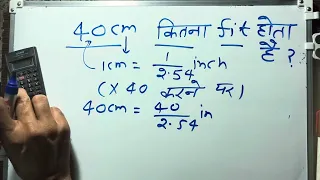 40cm कितना fit होता है ?
1cm = 1/2.54 inch
(× 40 करने पर)
40cm = 40/2.54 in